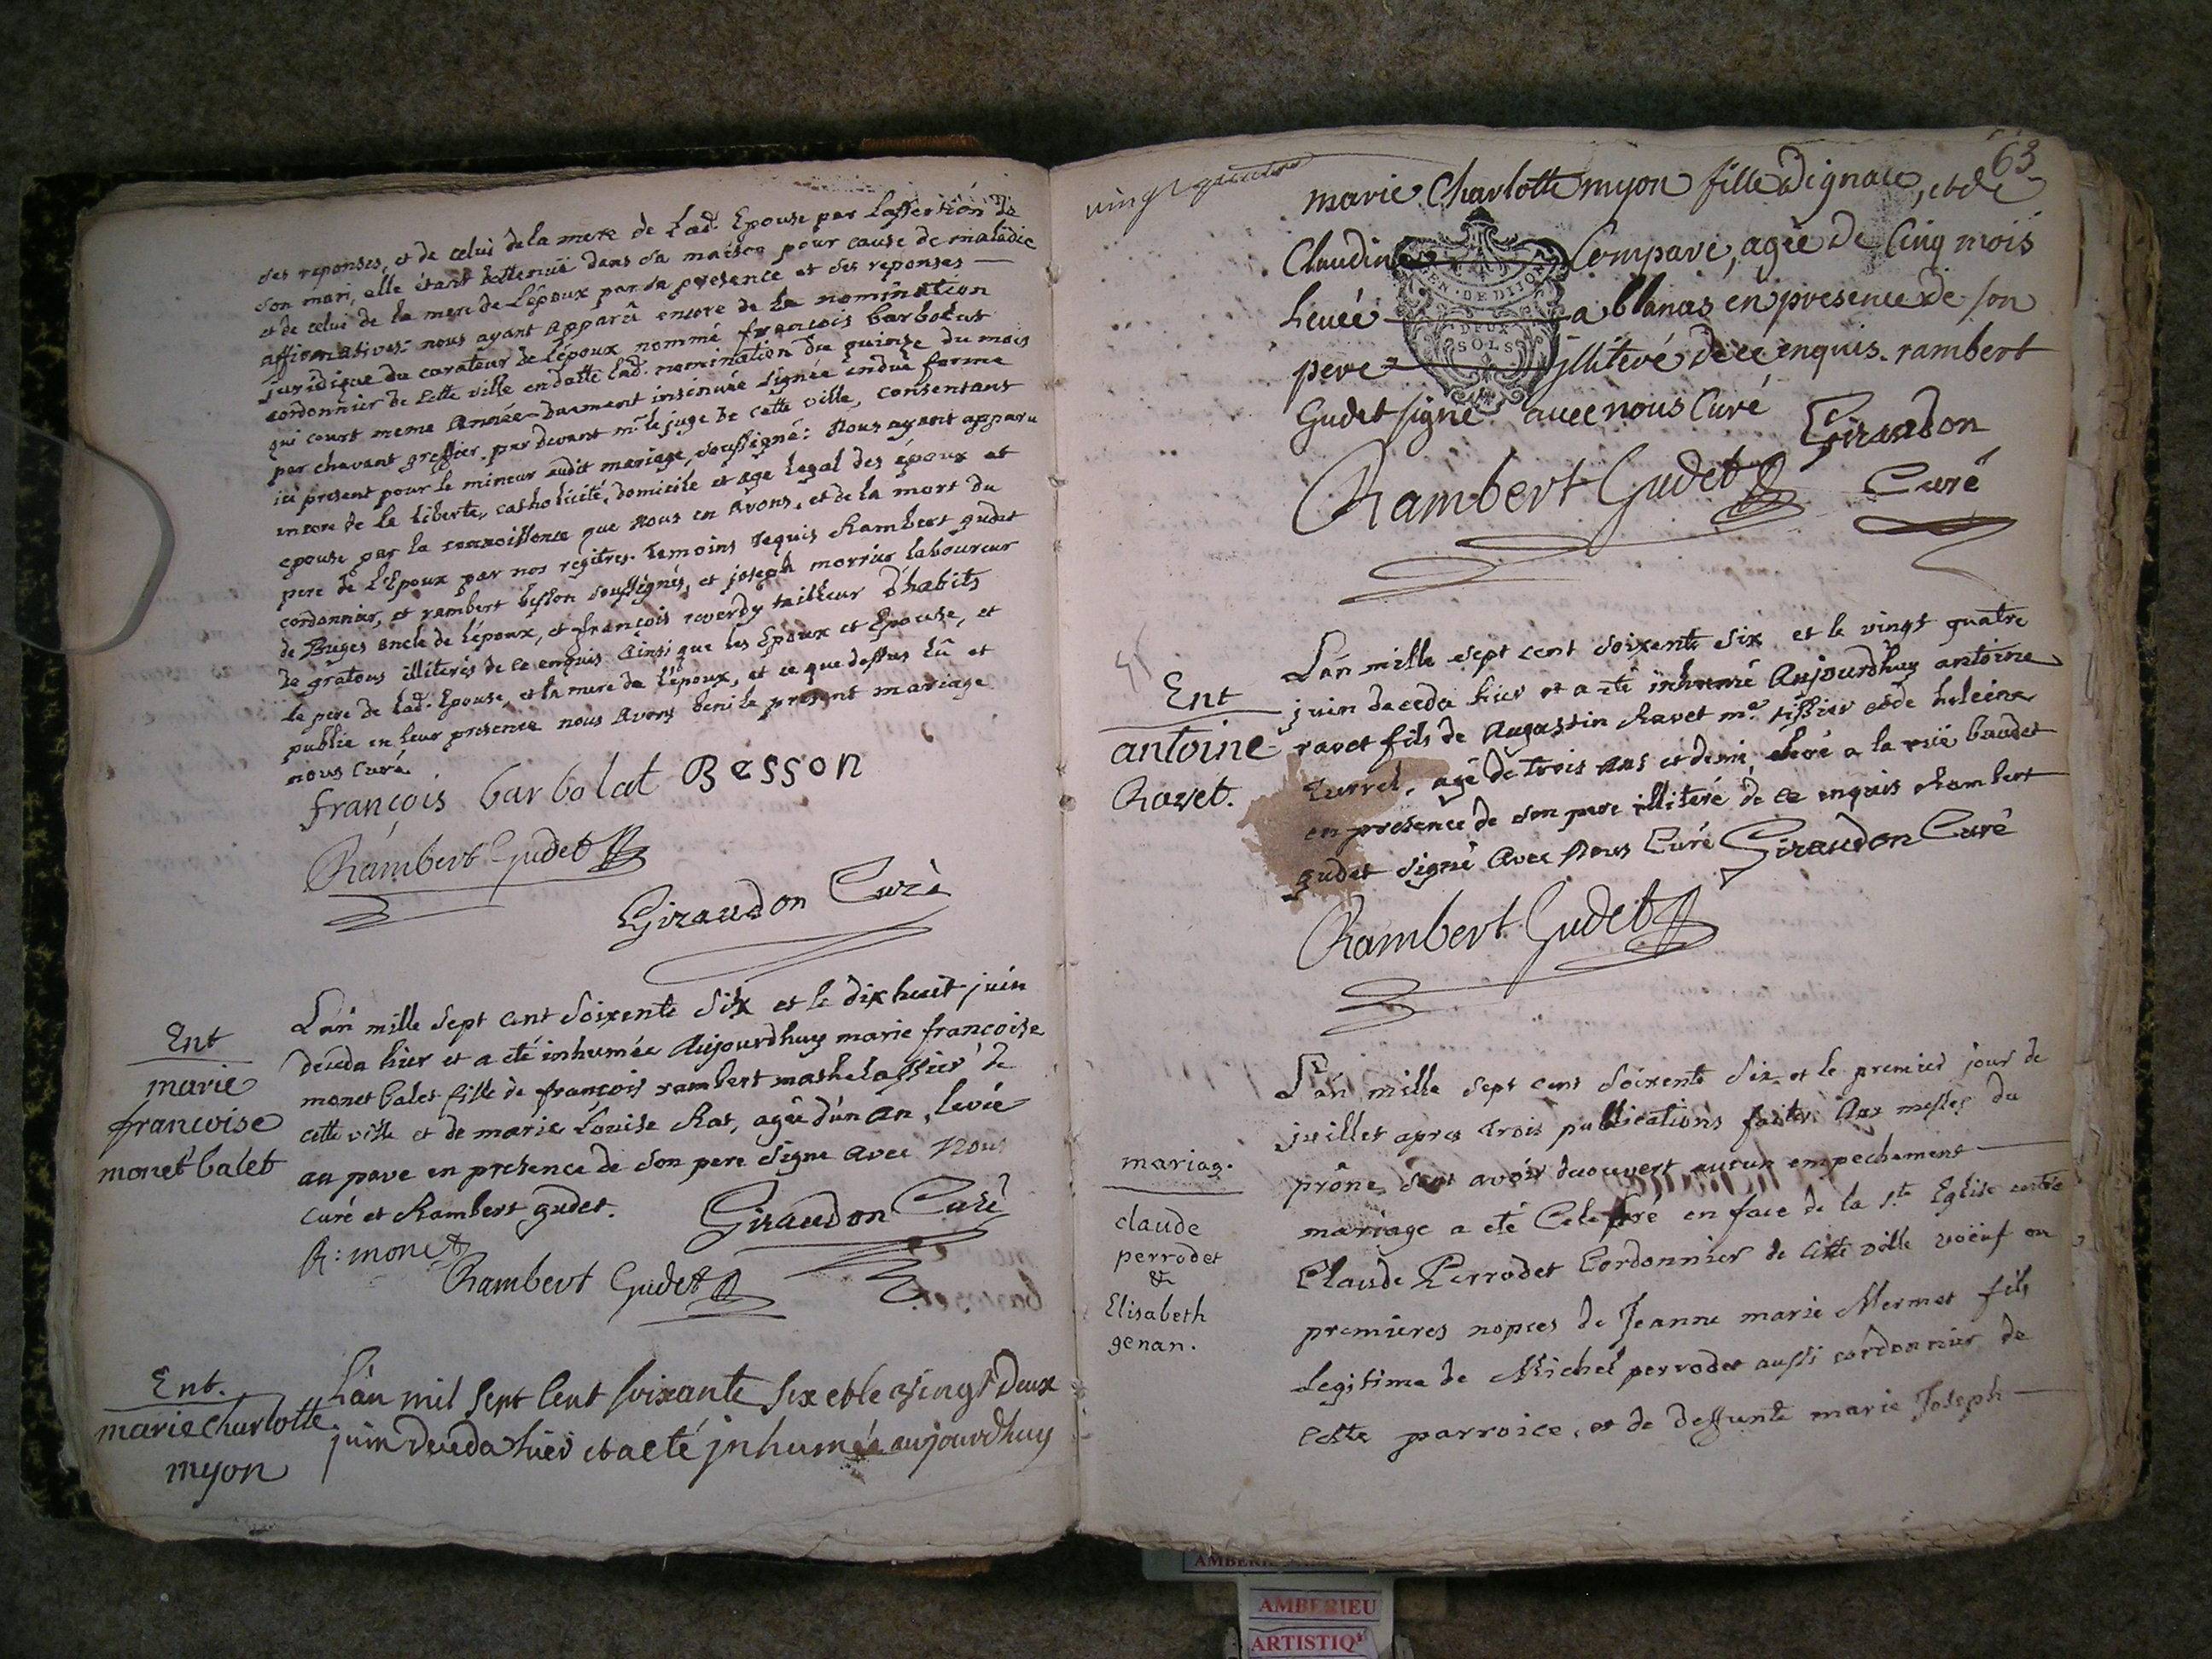 ses reponses, et de celui de la mere de Lad. Epouse par Lassertion de
son mari, elle étant dans sa maison pour cause de maladie
et de celui de la mere de L'époux par sa presence et ses reponses —
affirmatives: nous ayant apparû encore de la nomination
juridique du curateur de L'époux nommé françois barbolat
cordonnier de cette ville en datte Lad. nomination du quinze du mois
qui court meme Année duement insinuée signée en duë forme
par chavant greffier par devant mr. le juge de cette ville, consentant
ici present pour le mineur audit mariage, soussigné: Nous ayant apparu
encore de la Liberte, catholicité, domicile et age legal des époux et
epouse par la connoissence que Nous en Avons, et de la mort du
pere de L'Epoux par nos regitres. temoins requis Rambert gudet
cordonnier, et rambert besson soussignés, et joseph morrier laboureur
de oncle de L'époux, et françois reverdy tailleur d'habits
de gratous illiterés de ce enquis Ainsi que les Epoux et Epouse, et
le pere de Lad. Epouse, et la mere de L'époux, et ce que dessus Lû et
publié en leur presence nous Avons beni le present mariage
nous Curé.
françois barbolat Besson
Rambert Gudet
Giraudon Curé
Ent
marie
francoise
monet balet
L'an mille sept cent soixente six et le dix huit juin
deceda hier et a été inhumée Aujourdhuy marie françoise
monet balet fille de françois rambert mathelassier de
cette ville et de marie Louise Ras, agée d'un an, levée
au pave en presence de son pere signe avec nous
Curé et Rambert gudet. Giraudon Curé
R: monet
Rambert Gudet
Ent.
marie charlotte
myon
L'an mil sept Cent soixante six et le vingt deux
juin deceda hier et a eté jnhumée aujourdhuy
63
vingt quatre
marie Charlotte myon fille dignace, et de
Claudine Compare, agée de Cinq mois
Leuée a blanas en presence de son
pere jlliteré de ce enquis. rambert
Gudet signé avec nous Curé Giraudon
Rambert Gudet Curé
GEN. DE DIJON
DEUX
SOLS
Ent
antoine
Ravet.
L'an mille sept cent soixente six et le vingt quatre
juin deceda hier et a eté inhumé Aujourdhuy antoine
ravet fils de Augustin Ravet me. tissier et de heleine
Turrel, agé de trois ans et demi, levé a la ruë baudet
en presence de son pere illiteré de ce enquis Rambert
gudet signé Avec Nous Curé Giraudon Curé
Rambert Gudet
mariag.
claude
perrodet
&
Elisabeth
genan.
L'an mille sept cent soixente six et le premier jour de
juillet apres trois publications faites Aux messes du
prône sans avoir decouvert aucun empechement —
mariage a eté Celebré en face de la ste. Eglise entre
Claude Perrodet Cordonnier de cette ville voeuf en
premieres nopces de Jeanne marie Mermet fils
legitime de Michel perrodet aussi cordonnier de
cette parroice, et de deffunte marie Joseph —
AMBERIEU
ARTISTIQ